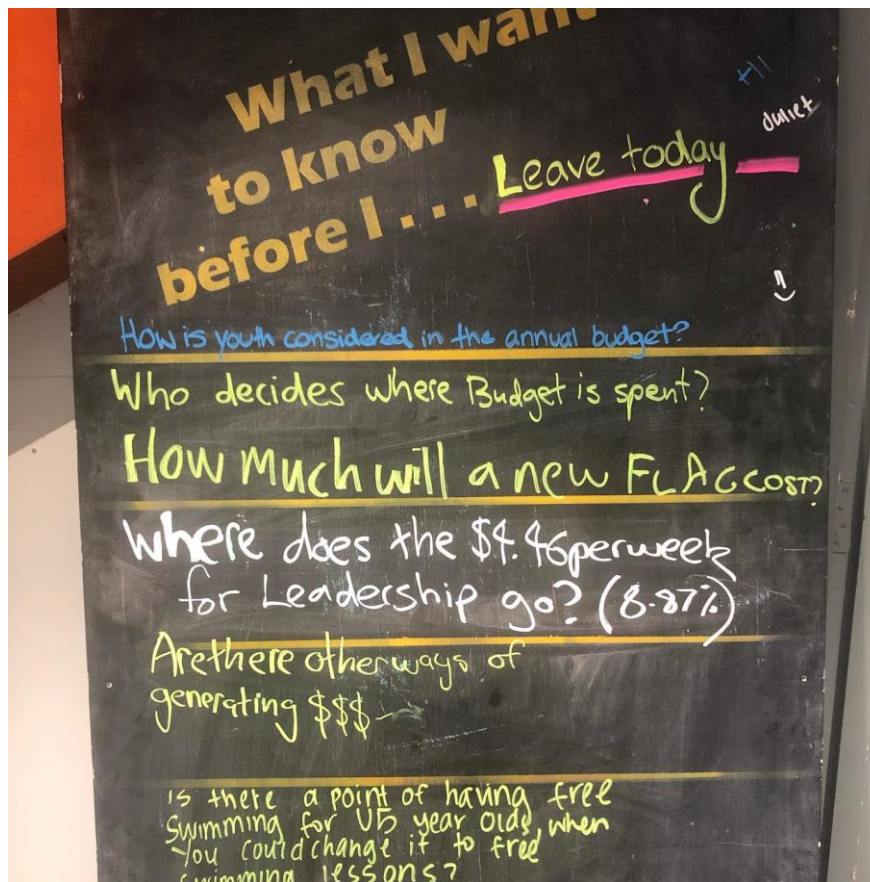 What I want
to know
before I . . . Leave today
Juliet
How is youth considered in the annual budget?
Who decides where Budget is spent?
How Much will a new FLAG COST?
Where does the $4.46 per week
for Leadership go? (8.87%)
Are there other ways of
generating $$$
is there a point of having free
Swimming for U5 year olds, when
you could change it to free
swimming lessons?